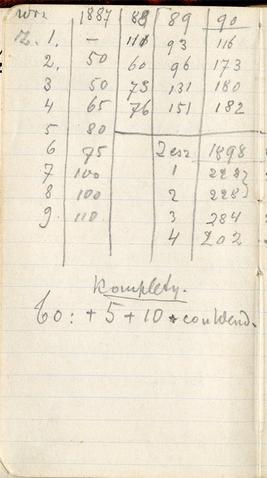 1887 88 89 90
z. 1. – 111 93 116
2. 50 60 96 173
3 50 73 131 180
4 65 76 151 182
5 80
6 75 Zesz 1898
7 100 1 228
8 100 2 228
9. 110 3 284
4 202
Komplety.
60: + 5 + 10 +